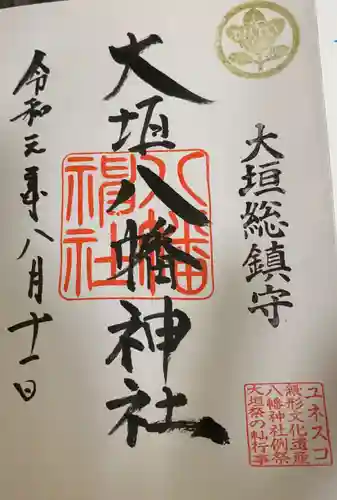 大垣総鎮守
大垣八幡神社
令和元年八月十一日
八幡
神社
ユネスコ
無形文化遺産
八幡神社例祭
大垣祭の軕行事